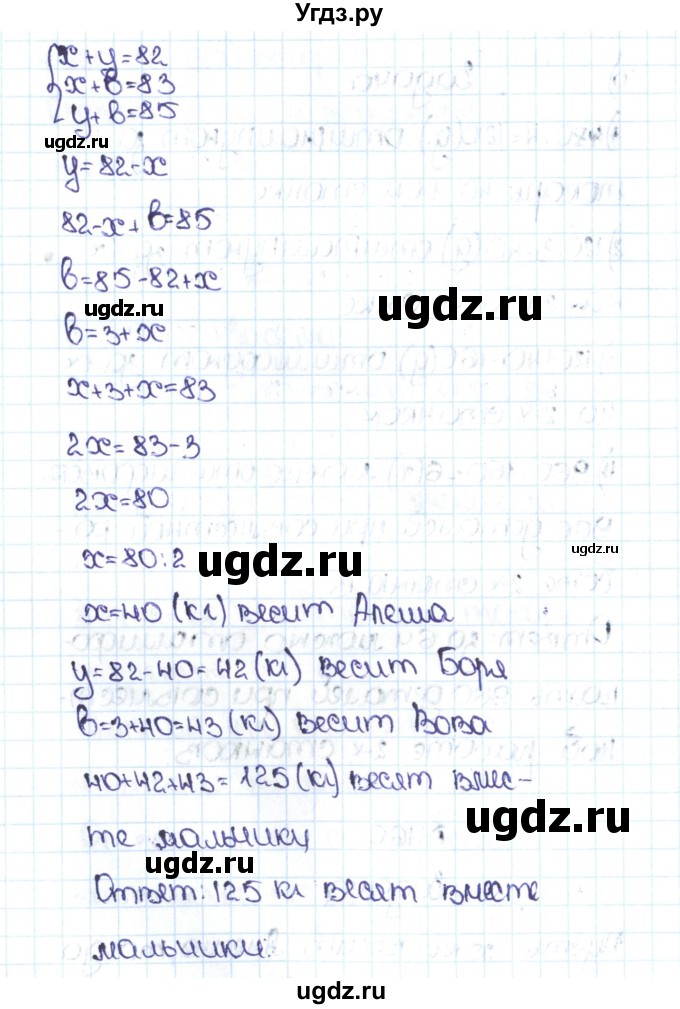 Угдз.ру
x+y=82
x+в=83
y+в=85
ugdz.ru
y=82-x
82-x+в=85
в=85-82+x
ugdz.ru
ugdz.ru
в=3+x
x+3+x=83
2x=83-3
2x=80
x=80:2
ugdz.ru
ugdz.ru
x=40 (кг) весит Алеша
y=82-40=42 (кг) весит Боря
в=3+40=43 (кг) весит Вова
40+42+43=125 (кг) весят вмес-
ugdz.ru
те мальчики
ugdz.ru
Ответ: 125 кг весят вместе
мальчики.
ugdz.ru